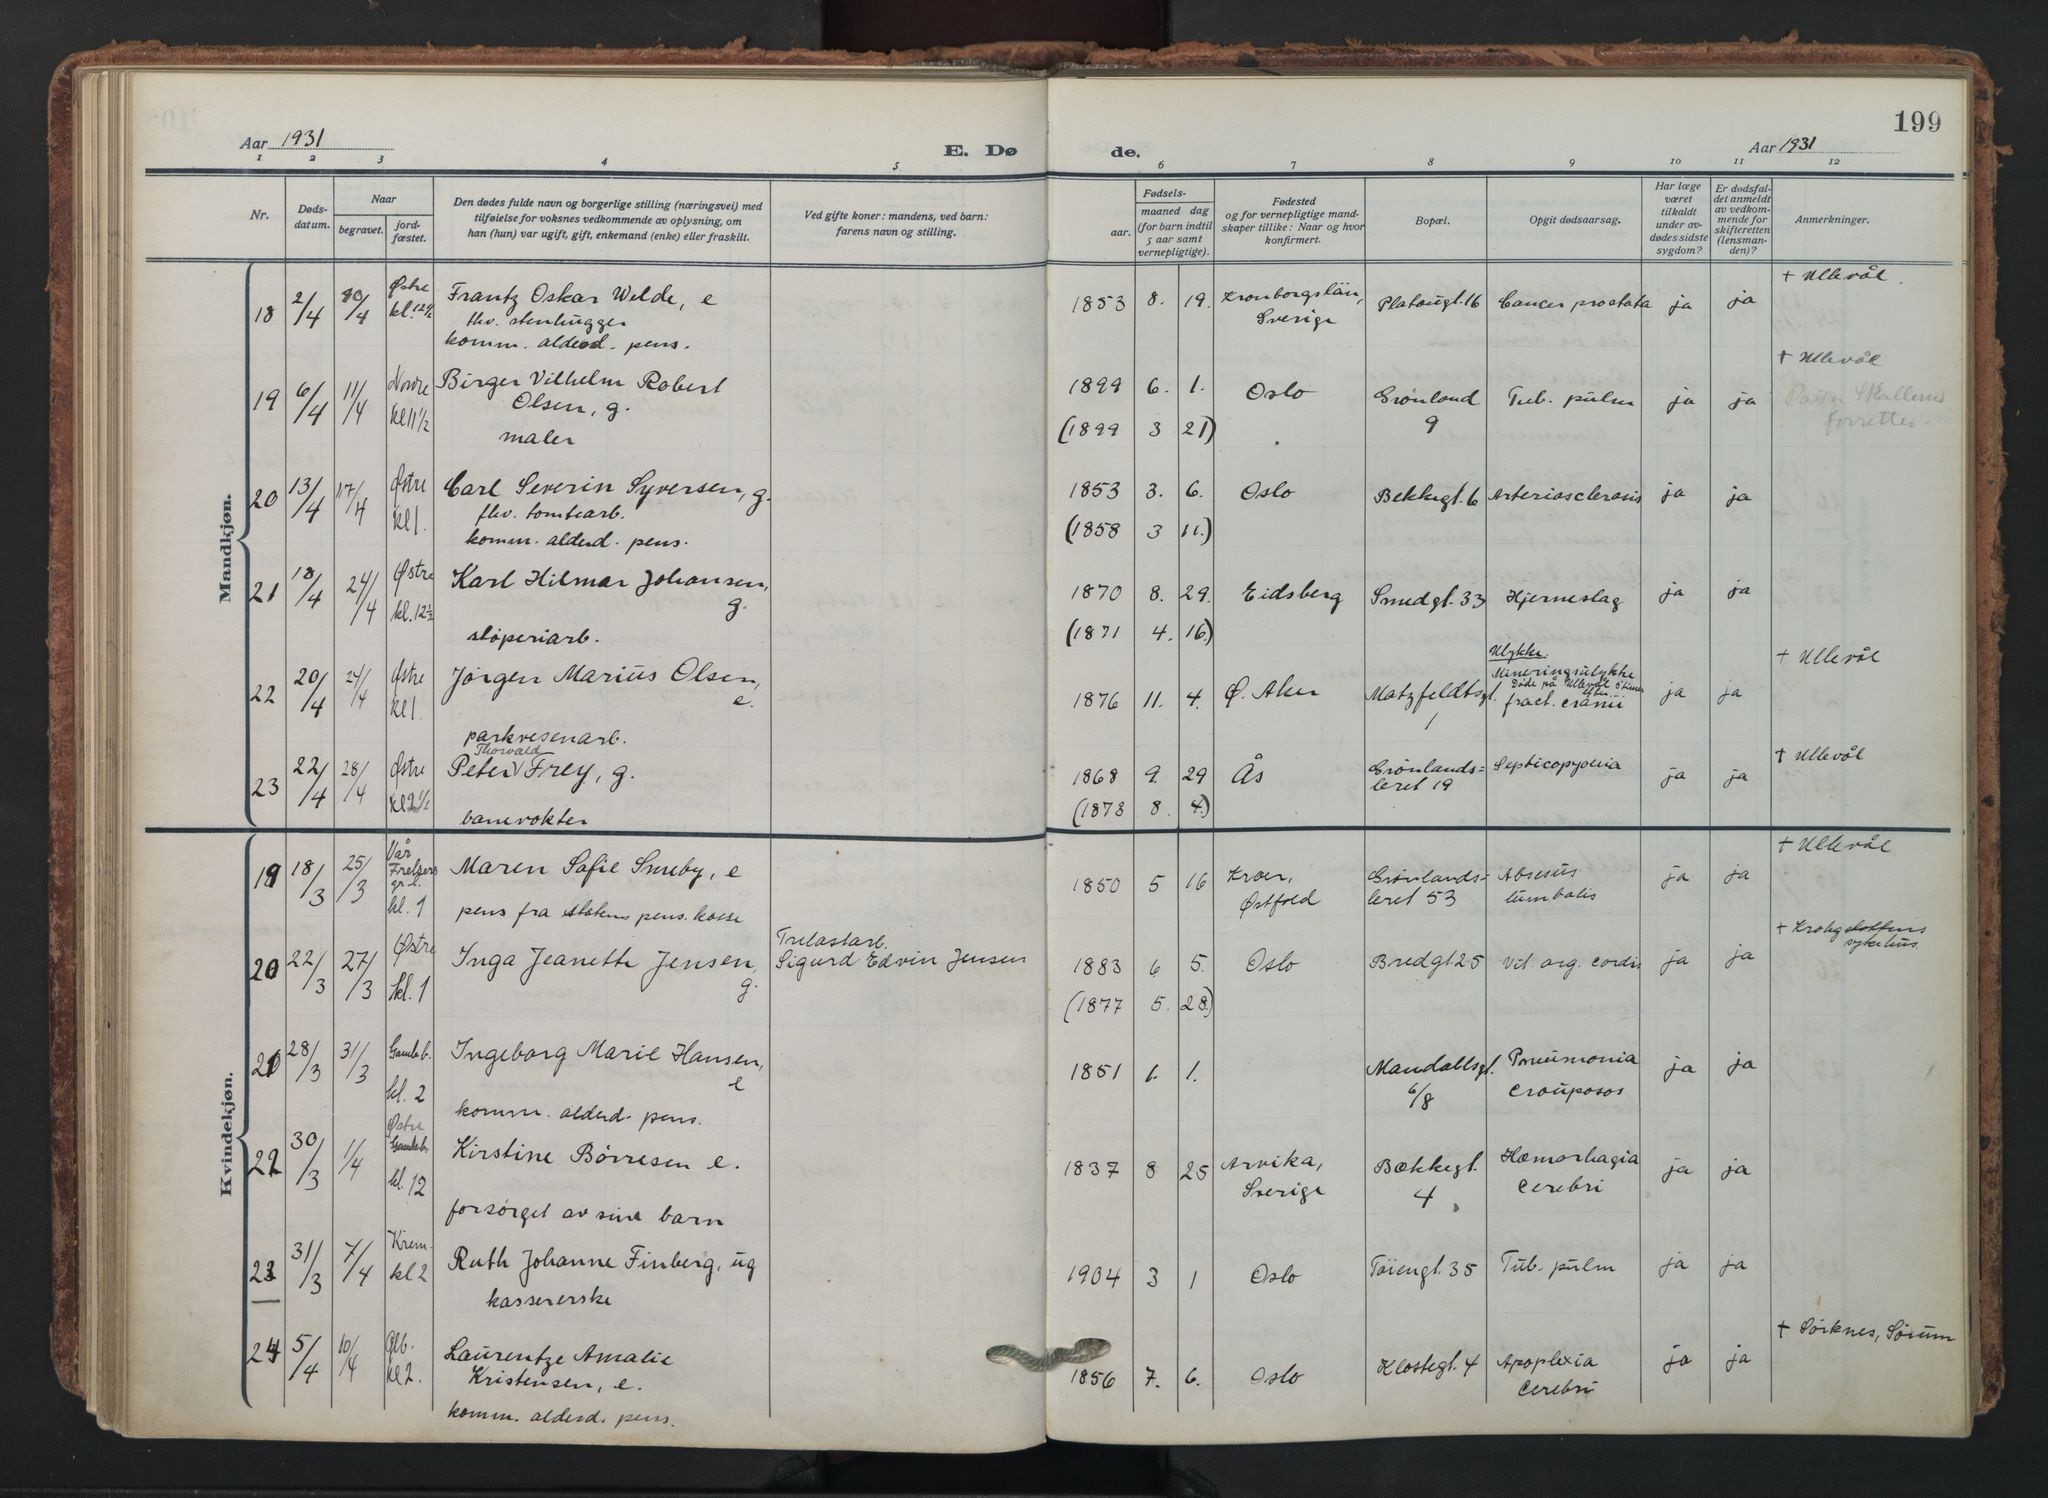 199
Aar 1931
E. Dø
de.
Aar 1931
1 2 3 4 5 6 7 8 9 10 11 12
Nr.
Døds-
datum.
Naar
begravet.
jord-
fæstet.
Den dødes fulde navn og borgerlige stilling (næringsvei) med
tilføielse for voksnes vedkommende av oplysning, om
han (hun) var ugift, gift, enkemand (enke) eller fraskilt.
Ved gifte koner: mandens, ved barn:
farens navn og stilling.
Fødsels-
aar.
maaned dag
(for barn indtil
5 aar samt
vernepligtige).
Fødested
og for vernepligtige mand-
skaper tillike: Naar og hvor
konfirmert.
Bopæl.
Opgit dødsaarsag.
Har læge
været
tilkaldt
under av-
dødes sidste
sygdom?
Er dødsfal-
det anmeldt
av vedkom-
mende for
skifteretten
(lensman-
den)?
Anmerkninger.
Mandkjøn.
18 2/4 10/4 Østre kl. 12½ Frantz Oskar Welde, e 1853 8. 19. Kronborgslän, Platougt. 16 Cancer prostata ja ja + Ullevål.
fhv. stenhugger Sverige
komm. alderd. pens.
19 6/4 11/4 Nordre kl 11½ Birger Vilhelm Robert 1899 6. 1. Oslo Grønland Tub. pulm ja ja + Ullevål
Olsen, g. (1899 3 21) 9
maler forretter.
20 13/4 17/4 Østre kl 1. Carl Severin Syversen, g. 1853 3. 6. Oslo Bekkegt. 6 Arteriosclerosis ja ja
fhv. tomtearb. (1858 3 11.)
komm. alderd. pens.
21 18/4 24/4 Østre kl. 12½ Karl Hilmar Johansen, 1870 8. 29. Eidsberg Smedgt. 33 Hjerneslag ja ja
g. (1871 4. 16.)
støperiarb.
22 20/4 24/4 Østre kl 1. Jørgen Marius Olsen, 1876 11. 4. Ø. Aker Matzfeldtsgt. Ulykke. ja ja + Ullevål
e. 1 Mineringsulykke
Døde på Ullevål 5 timer efter.
fract. cranii
parkvesenarb.
23 22/4 28/4 Østre kl 2½ Peter Thorvald Frey, g. 1868 9. 29 Ås Grønlands= Septicopyemia ja ja + Ullevål
(1873 8. 4.) leret 19
banevokter
Kvindekjøn.
19 18/3 25/3 Vår Frelsers gr.l. kl. 1 Maren Sofie Smeby, e 1850 5 16 Kroer, Grønlands= Absesus ja ja + Ullevål
Østfold leret 53 lumbalis
pens fra statens pens. kasse
20 22/3 27/3 Østre kl. 1 Inga Jeanette Jensen, Trelastarb. 1883 6 5. Oslo Bredgt 25 Vit. org. cordis ja ja + Krohgstøttens
g. Sigurd Edvin Jensen (1877 5. 28.) sykehus
21 28/3 31/3 Gamleb. kl. 2 Ingeborg Marie Hansen, 1851 1. 1. Mandallsgt. Pneumonia ja ja
e 6/8 crouposos
komm. alderd. pens.
22 30/3 1/4 Østre Gamleb. kl. 12 Kirstine Børresen e. 1837 8 25 Arvika, Bækkegt. Hæmorhagia ja ja
Sverige 4 cerebri
forsørget av sine barn
23 31/3 7/4 Krem. kl 2 Ruth Johanne Finberg, ug 1904 3 1 Oslo Tøiengt. 35 Tub. pulm ja ja
kassererske
24 5/4 10/4 Glb. kl 2. Laurentze Amalie 1856 7. 6. Oslo Klostegt. 4 Apoplexia ja ja + Sørknes, Sørum
Kristensen, e. cerebri
komm. alderd. pens.